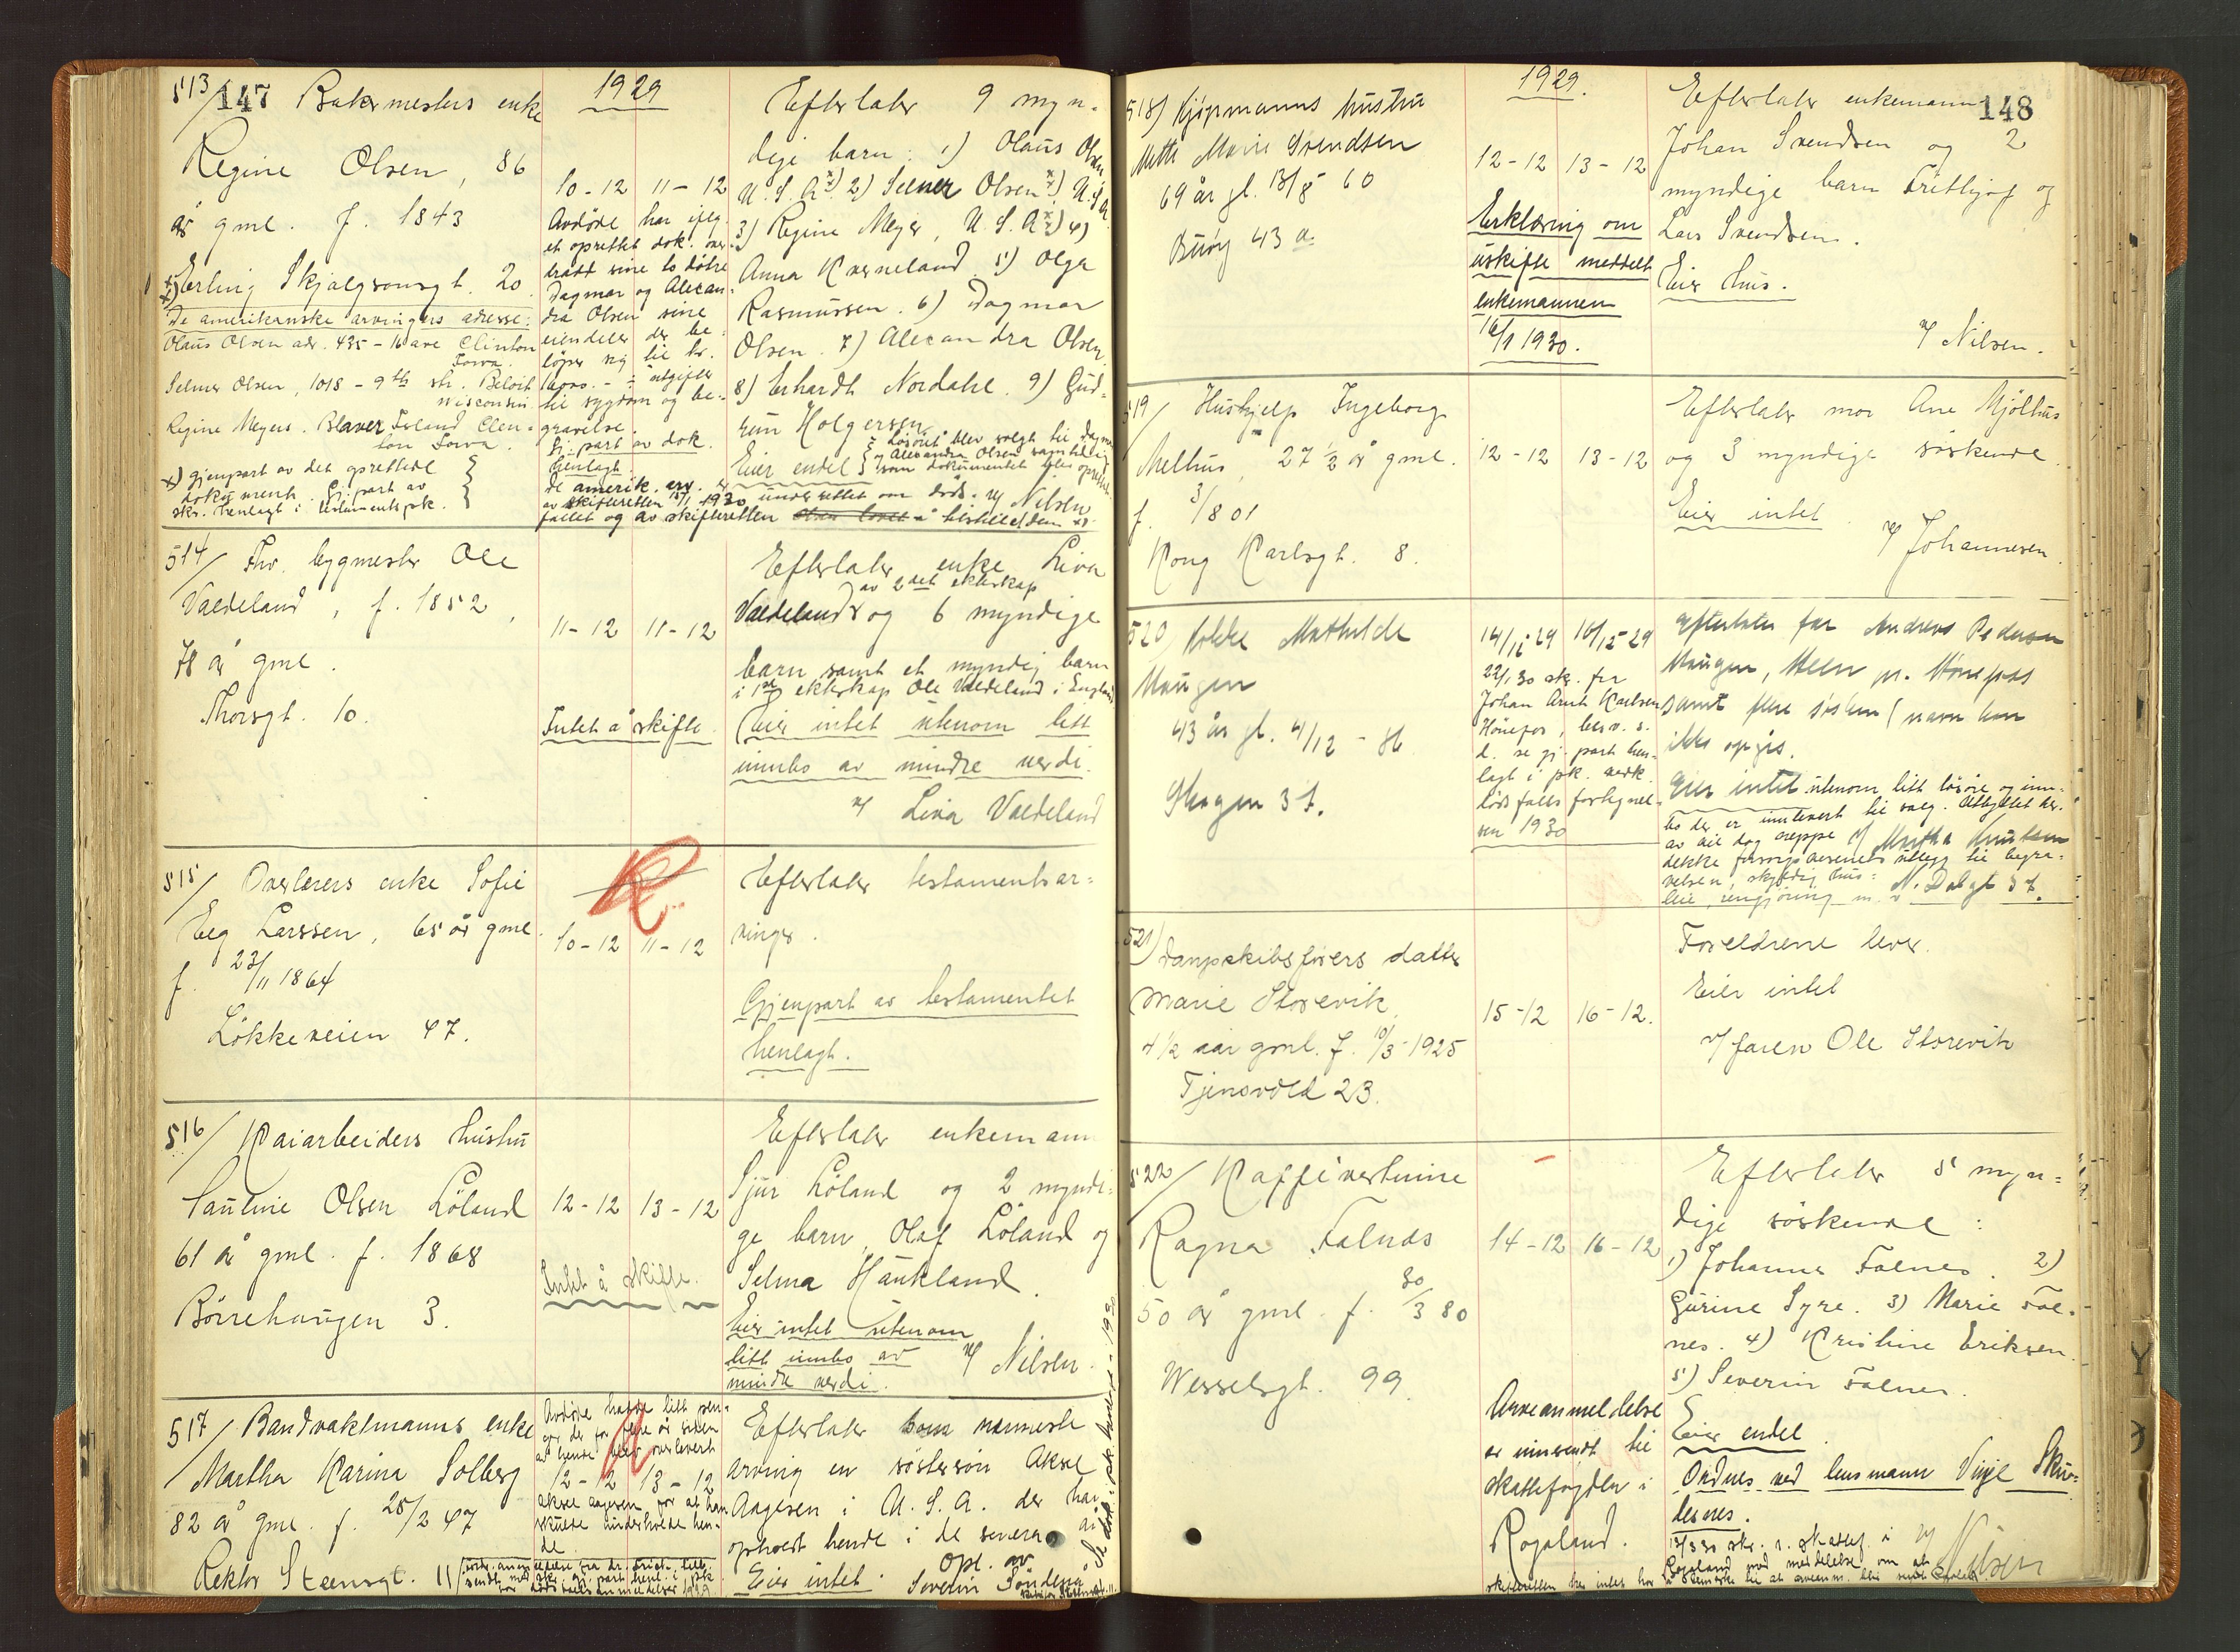 147
1929
513/ Bakermesters enke
Regine Olsen, 86
år gml. f. 1843
Erling Skjalgsonsgt. 20
De amerikanske arvingers adresse:
Olaus Olsen adr. 435 - 16 ave Clinton
Iowa.
Selmer Olsen, 1018 - 9th str. Beloit
Wisconsin
Regine Meyers. Island Clin=
ton Iowa.
x) gjenpart av det oprettede
dokument. Gj.part av
skr. henlagt i testamentspk.
10-12 11-12
Avdøde har
et oprettet dok. over-
dradd sine to døtre
Dagmar og Alexan-
dra Olsen sine
eiendeler der be-
løper sig til kr.
1600.- ÷ utgifter
til sygdom og be-
gravelse.
Gj.part av dok.
henlagt.
De amerik. arv. er
av skifteretten 15/1 1930 underrettet om døds-
fallet og av skifteretten
Efterlater 9 myn-
dige barn: 1) Olaus Olsen,
U.S.A x) 2) Selmer Olsen x) U.S.A
3) Regine Meyer, U.S.A x) 4)
Anna Kverneland 5) Olga
Rasmussen. 6) Dagmar
Olsen. 7) Alexandra Olsen
8) Erhardt Nordahl. 9) Gud-
run Holgersen
Eier endel { Løsøret blev solgt til Dagmar
og Alexandra Olsen samtidig
som dokumentet blev oprettet
v/ Nilsen
514/ Fhv. bygmester Ole
Valdeland, f. 1852,
78 år gml.
Thorsgt. 10.
11-12 11-12
Intet å skifte.
Efterlater enke Liva
av 2det ekteskap
Valdeland og 6 myndige
barn samt et myndig barn
i 1ste ekteskap Ole Valdeland i England
Eier intet utenom litt
innbo av mindre verdi.
v/ Liva Valdeland
515/ Overlærers enke Sofie
Eeg Larssen, 65 år gml.
f. 23/11 1864
Løkkeveien 47.
10-12 11-12
Efterlater testamentsar=
vinger.
Gjenpart av testamentet
henlagt.
516/ Kaiarbeiders hustru
Pauline Olsen Løland
61 år gml. f. 1868
Børrehaugen 3.
12-12 13-12
Intet å skifte.
Efterlater enkemann
Sjur Løland og 2 myndi=
ge barn, Olaf Løland og
Selma Haukland.
Eier intet utenom
litt innbo av
mindre verdi.
v/ Nilsen.
517/ Bandvaktmanns enke
Martha Karina Solberg
82 år gml. f. 28/2 47
Rektor Steensgt. 11
Avdøde hadde litt pen-
ger der for flere år siden
av hende blev overlevert
12-12 13-12
Aksel Aagesen for at han
skulde underholde hen-
de.
Efterlater som nærmeste
arving en søstersøn Aksel
Aagesen i U.S.A. der har
opholdt hende i de senere år
Eier intet. Opl. av
Severin Tøndesen
148
1929.
518) Kjøpmanns hustru
Mette Marie Svendsen
69 år gl. 13/8 60
Buøy 43 a.
12-12 13-12
Erklæring om
uskifte meddelt
enkemannen
16/1 1930.
Efterlater enkemann
Johan Svendsen og 2
myndige barn Fritthjof og
Lars Svendsen.
Eier hus.
v/ Nilsen.
519/ Hushjelp Ingeborg
Melhus, 27 1/2 år gml.
f. 3/8 01
Kong Karlsgt. 8.
12-12 13-12
Efterlater mor Ane Mjølhus
og 3 myndige søskende.
Eier intet.
v/ Johannesen.
520) Kokke Mathilde
Haugen
43 år gl. 4/12 - 86
Skagen 37.
14/12 29 16/12 29
22/1 30 skr. fra
Johan Arnt Karlsen
Hønefos, besv. s.
d. se gj.part hen-
lagt i pk. vedk.
dødsfallsfortegnel-
sen 1930
Efterlater far Andreas Pedersen
Haugen, Heen pr. Hønefoss
samt flere søsken (navn kan
ikke opgis.
Eier intet utenom litt løsøre og inn-
bo der er innlevert til salg. Utbyttet her-
av vil dog neppe v/ Martha Knutsen
dekke forsorgsvesenets utlegg til begra-
velsen, skyldig hus=
leie, rengjøring m.v. N. Dalgt 37.
521) Dampskibsførers datter
Marie Storevik
4 1/2 aar gml. f. 10/3 - 1925
Tjensvold 23.
15-12 16-12.
Foreldrene lever.
Eier intet
v/ faren Ole Storevik
522/ Kaffivertinne
Ragna Falnes
50 år gml. f. 30/3 80
Wesselsgt. 99.
14-12 16-12
Arveanmeldelse
er innsendt til
skattefogden i
Rogaland.
Efterlater 5 myn=
dige søskende:
1) Johanne Falnes. 2)
Gurine Syre. 3) Marie Fal-
nes. 4) Kristine Eriksen.
5) Severin Falnes.
Eier endel.
Ordnes ved lensmann Vinje Sku=
desnes.
13/3 30 skr. t. skattef. i
Rogaland med meddelelse om at
v/ Nilsen